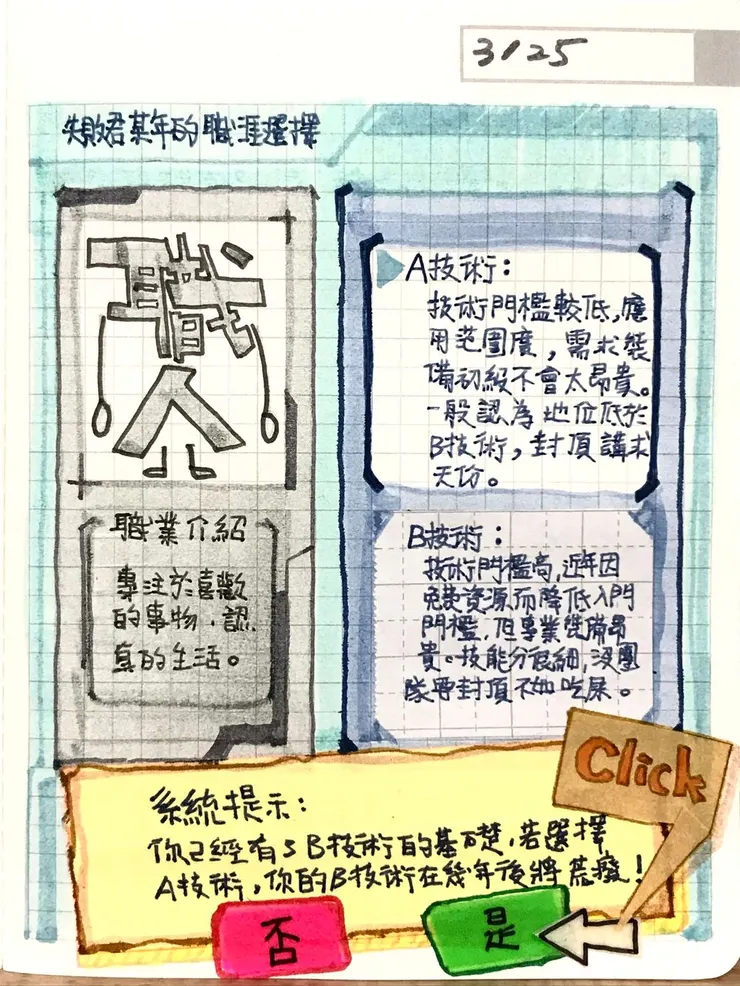 3/25
失敗君某年的職涯選擇
職人
職業介紹
專注於喜歡
的事物，認
真的生活。
A技術：
技術門檻較低，應
用范圍廣，需求裝
備初級不會太昂貴。
一般認為地位低於
B技術，封頂講求
天份。
B技術：
技術門檻高，近年因
免費資源而降低入門
門檻，但專業裝備昂
貴。技能分很細，沒團
隊要封頂不如吃屎。
Click
系統提示：
你已經有5B技術的基礎，若選擇
A技術，你的B技術在幾年後將荒廢！
否
是